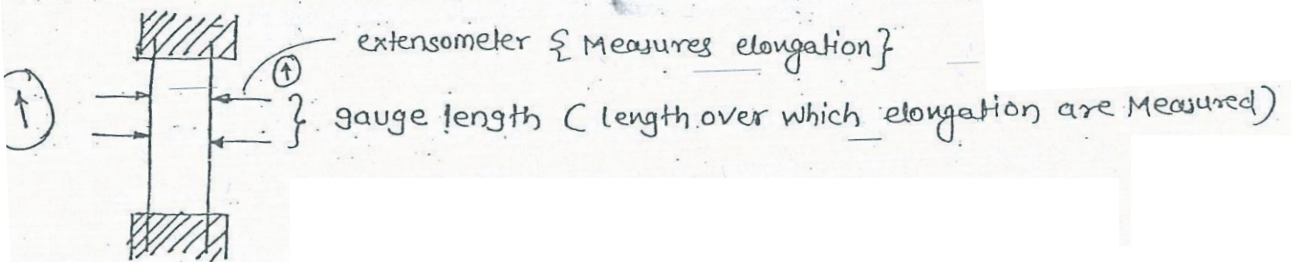 extensometer { Measures elongation }
↑
↑
} gauge length ( length over which elongation are Measured )